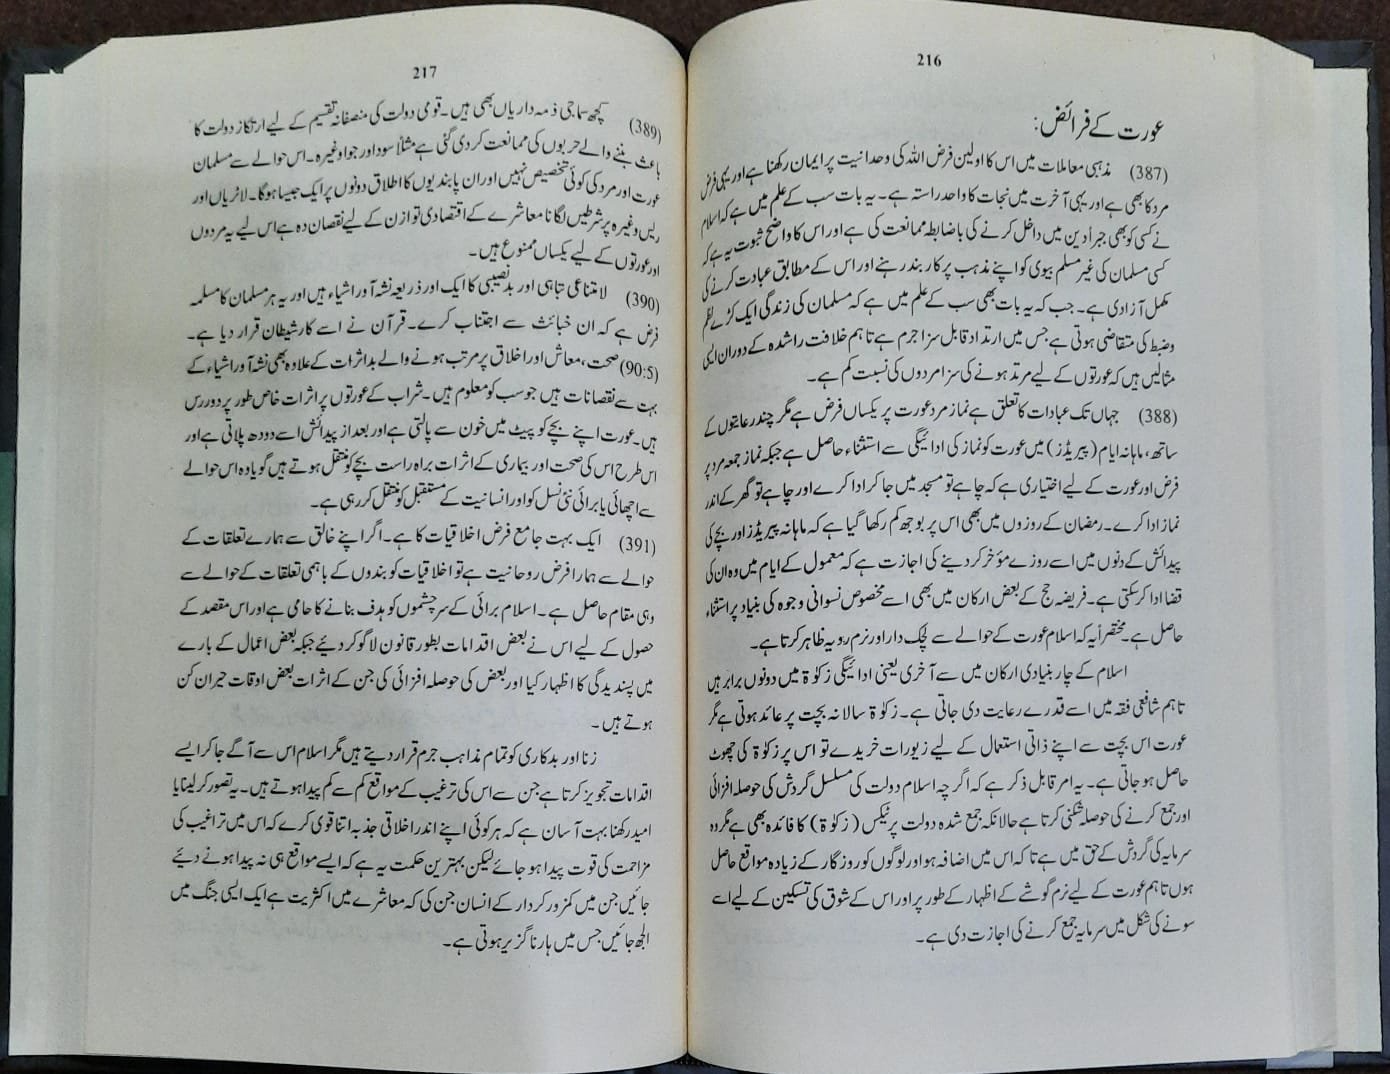 216
عورت کے فرائض:
(387) مذہبی معاملات میں اس کا اولین فرض اللہ کی وحدانیت پر ایمان رکھنا ہے اور یہی فرض
مرد کا بھی ہے اور یہی آخرت میں نجات کا واحد راستہ ہے۔ یہ بات سب کے علم میں ہے کہ اسلام
نے کسی کو بھی جبراً دین میں داخل کرنے کی باضابطہ ممانعت کی ہے اور اس کا واضح ثبوت یہ ہے کہ
کسی مسلمان کی غیر مسلم بیوی کو اپنے مذہب پر کاربند رہنے اور اس کے مطابق عبادت کرنے کی
مکمل آزادی ہے۔ جب کہ یہ بات بھی سب کے علم میں ہے کہ مسلمان کی زندگی ایک کڑے نظم
وضبط کی متقاضی ہوتی ہے جس میں ارتداد قابل سزا جرم ہے تاہم خلافت راشدہ کے دوران ایسی
مثالیں ہیں کہ عورتوں کے لیے مرتد ہونے کی سزا مردوں کی نسبت کم ہے۔
(388) جہاں تک عبادات کا تعلق ہے نماز مرد عورت پر یکساں فرض ہے مگر چند رعایتوں کے
ساتھ، ماہانہ ایام (پیریڈز) میں عورت کو نماز کی ادائیگی سے استثناء حاصل ہے جبکہ نماز جمعہ مرد پر
فرض اور عورت کے لیے اختیاری ہے کہ چاہے تو مسجد میں جا کر ادا کرے اور چاہے تو گھر کے اندر
نماز ادا کرے۔ رمضان کے روزوں میں بھی اس پر بوجھ کم رکھا گیا ہے کہ ماہانہ پیریڈز اور بچے کی
پیدائش کے دنوں میں اسے روزے مؤخر کر دینے کی اجازت ہے کہ معمول کے ایام میں وہ ان کی
قضا ادا کرسکتی ہے۔ فریضہ حج کے بعض ارکان میں بھی اسے مخصوص نسوانی وجوہ کی بنیاد پر استثناء
حاصل ہے۔ مختصراً یہ کہ اسلام عورت کے حوالے سے لچک دار اور نرم رویہ ظاہر کرتا ہے۔
اسلام کے چار بنیادی ارکان میں سے آخری یعنی ادائیگی زکوٰۃ میں دونوں برابر ہیں
تاہم شافعی فقہ میں اسے قدرے رعایت دی جاتی ہے۔ زکوٰۃ سالانہ بچت پر عائد ہوتی ہے مگر
عورت اس بچت سے اپنے ذاتی استعمال کے لیے زیورات خریدے تو اس پر زکوٰۃ کی چھوٹ
حاصل ہو جاتی ہے۔ یہ امر قابل ذکر ہے کہ اگرچہ اسلام دولت کی مسلسل گردش کی حوصلہ افزائی
اور جمع کرنے کی حوصلہ شکنی کرتا ہے حالانکہ جمع شدہ دولت پر ٹیکس (زکوٰۃ) کا فائدہ بھی ہے مگر وہ
سرمایہ کی گردش کے حق میں ہے تاکہ اس میں اضافہ ہو اور لوگوں کو روزگار کے زیادہ مواقع حاصل
ہوں تاہم عورت کے لیے نرم گوشے کے اظہار کے طور پر اور اس کے شوق کی تسکین کے لیے اسے
سونے کی شکل میں سرمایہ جمع کرنے کی اجازت دی ہے۔
217
(389) کچھ سماجی ذمہ داریاں بھی ہیں۔ قومی دولت کی منصفانہ تقسیم کے لیے ارتکاز دولت کا
باعث بننے والے حربوں کی ممانعت کر دی گئی ہے مثلاً سود اور جوا وغیرہ۔ اس حوالے سے مسلمان
عورت اور مرد کی کوئی تخصیص نہیں اور ان پابندیوں کا اطلاق دونوں پر ایک جیسا ہوگا۔ لاٹریاں اور
ریس وغیرہ پر شرطیں لگانا معاشرے کے اقتصادی توازن کے لیے نقصان دہ ہے اس لیے یہ مردوں
اور عورتوں کے لیے یکساں ممنوع ہیں۔
(390) لامتناعی تباہی اور بدنصیبی کا ایک اور ذریعہ نشہ آور اشیاء ہیں اور یہ ہر مسلمان کا مسلمہ
فرض ہے کہ ان خبائث سے اجتناب کرے۔ قرآن نے اسے کار شیطان قرار دیا ہے۔
(90:5) صحت، معاش اور اخلاق پر مرتب ہونے والے بد اثرات کے علاوہ بھی نشہ آور اشیاء کے
بہت سے نقصانات ہیں جو سب کو معلوم ہیں۔ شراب کے عورتوں پر اثرات خاص طور پر دوررس
ہیں۔ عورت اپنے بچے کو پیٹ میں خون سے پالتی ہے اور بعد از پیدائش اسے دودھ پلاتی ہے اور
اس طرح اس کی صحت اور بیماری کے اثرات براہ راست بچے کو منتقل ہوتے ہیں گویا وہ اس حوالے
سے اچھائی یا برائی نئی نسل کو اور انسانیت کے مستقبل کو منتقل کر رہی ہے۔
(391) ایک بہت جامع فرض اخلاقیات کا ہے۔ اگر اپنے خالق سے ہمارے تعلقات کے
حوالے سے ہمارا فرض روحانیت ہے تو اخلاقیات کو بندوں کے باہمی تعلقات کے حوالے سے
وہی مقام حاصل ہے۔ اسلام برائی کے سرچشموں کو ہدف بنانے کا حامی ہے اور اس مقصد کے
حصول کے لیے اس نے بعض اقدامات بطور قانون لاگو کر دیئے جبکہ بعض اعمال کے بارے
میں پسندیدگی کا اظہار کیا اور بعض کی حوصلہ افزائی کی جن کے اثرات بعض اوقات حیران کن
ہوتے ہیں۔
زنا اور بدکاری کو تمام مذاہب جرم قرار دیتے ہیں مگر اسلام اس سے آگے جا کر ایسے
اقدامات تجویز کرتا ہے جن سے اس کی ترغیب کے مواقع کم سے کم پیدا ہوتے ہیں۔ یہ تصور کر لینا یا
امید رکھنا بہت آسان ہے کہ ہر کوئی اپنے اندر اخلاقی جذبہ اتنا قوی کرے کہ اس میں تراغیب کی
مزاحمت کی قوت پیدا ہو جائے لیکن بہترین حکمت یہ ہے کہ ایسے مواقع ہی نہ پیدا ہونے دیئے
جائیں جن میں کمزور کردار کے انسان جن کی کہ معاشرے میں اکثریت ہے ایک ایسی جنگ میں
الجھ جائیں جس میں ہارنا گزیر ہوتی ہے۔